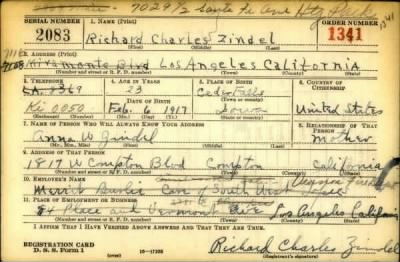 7029½ Santa Fe Ave Htg Park
SERIAL NUMBER 1. NAME (Print) ORDER NUMBER
2083 Richard Charles Zindel 1341
(First) (Middle) (Last)
2. ADDRESS (Print)
Miramonte Blvd Los Angeles California
(Number and street or R. F. D. number) (Town) (County) (State)
3. TELEPHONE 4. AGE IN YEARS 5. PLACE OF BIRTH 6. COUNTRY OF CITIZENSHIP
LA. 8369 23 Cedar Falls
DATE OF BIRTH (Town or county)
Ki 0050 Feb. 6 1917 Iowa United States
(Exchange) (Number) (Mo.) (Day) (Yr.) (State or country)
7. NAME OF PERSON WHO WILL ALWAYS KNOW YOUR ADDRESS 8. RELATIONSHIP OF THAT PERSON
Anna W Zindel Mother
(Mr., Mrs., Miss) (First) (Middle) (Last)
9. ADDRESS OF THAT PERSON
1817 W Compton Blvd Compton California
(Number and street or R. F. D. number) (Town) (County) (State)
10. EMPLOYER'S NAME
of South West
11. PLACE OF EMPLOYMENT OR BUSINESS
84 Place and Vermont Ave Los Angeles California
(Number and street or R. F. D. number) (Town) (County) (State)
I AFFIRM THAT I HAVE VERIFIED ABOVE ANSWERS AND THAT THEY ARE TRUE.
REGISTRATION CARD
D. S. S. Form 1 16—17105 Richard Charles Zindel
(Registrant's signature)